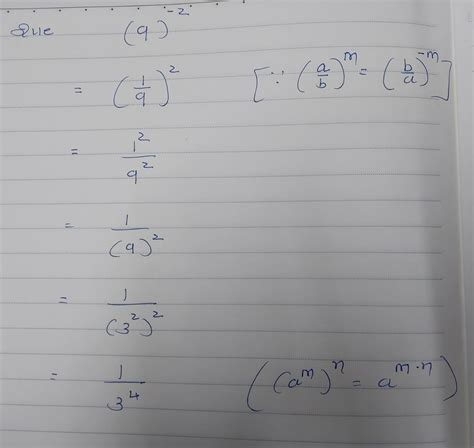 Que (9)^-2
= (1/9)^2 [∵ (a/b)^m = (b/a)^-m]
= 1^2/9^2
= 1/(9)^2
= 1/(3^2)^2
= 1/3^4 ((a^m)^n = a^m·n)